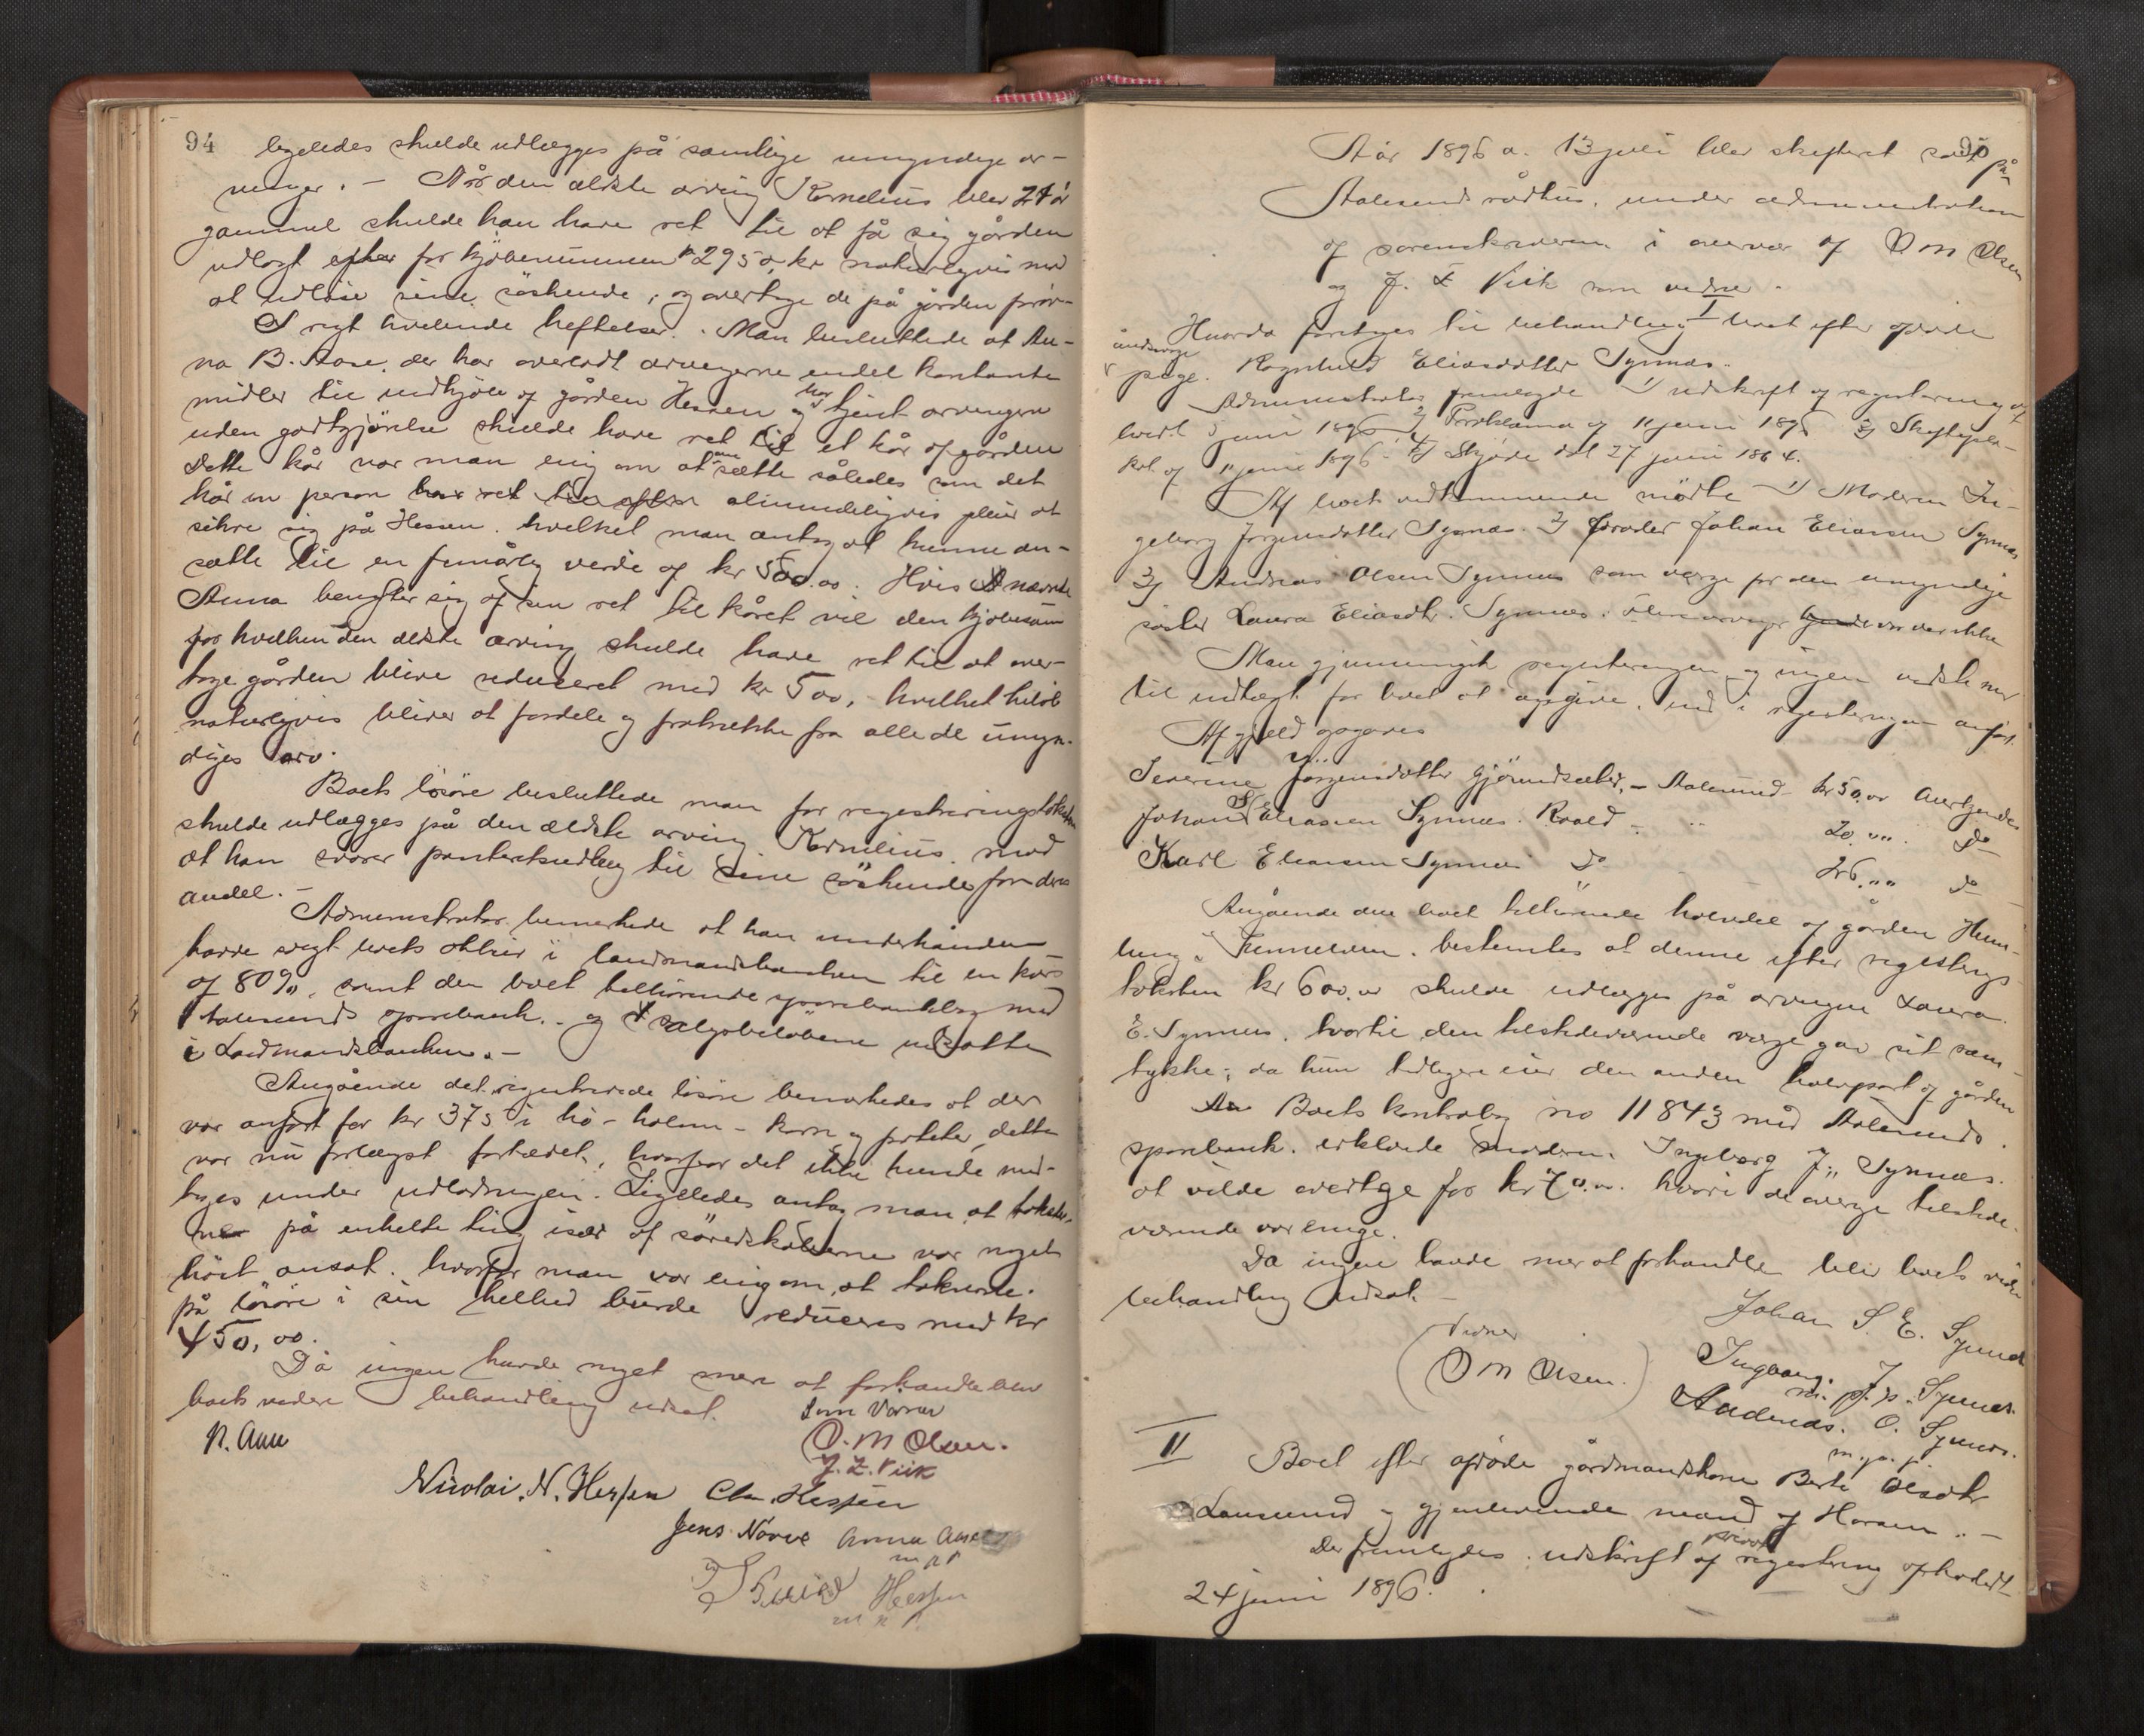 94
ligeledes skulde udlægges på samtlige umyndige ar-
vinger. – Når den ældste arving Kornelius blev 21 år
gammel skulde han have ret til at få sig gården
udlagt efter for kjøbesummen 2950 kr naturligvis mod
at udløse sine søskende, og overtage de på gården
hvilende heftelser. Man besluttede at An-
na B. Aase, der har overladt arvingerne endel kontante
midler til indkjøb af gården Hessen og har tjent arvingerne
uden godtgjørelse skulde have ret til et kår af gården
Dette kår var man enig om at ansætte således som det
kår en person har ret til efter almindeligvis pleier at
sikre sig på Hessen, hvilket man antog at kunne an-
sætte til en femårlig værdi af kr 500.00. Hvis nævnte
Anna benytter sig af sin ret til kåret vil den kjøbesum
for hvilken den ældste arving skulde have ret til at over-
tage gården blive reduceret med kr 500, hvilket beløb
naturligvis bliver at fordele og fratrække fra alle de umyn-
diges arv.
Boets løsøre besluttede man for registreringstaksten
skulde udlægges på den ældste arving Kornelius mod
at han svarer panteretsudlæg til sine søskende for deres
andel. –
Administrator bemærkede at han underhånden
havde solgt boets aktier i landmandsbanken til en kurs
af 80%, samt den boet tilhørende sparebankbog med
Aalesunds sparebank. og salgsbeløbene indsatte
i Landmandsbanken. –
Angående det registrerede løsøre bemærkedes at der
var anført for kr 375 i hø – halm – korn og poteter, dette
var nu forlængst fortæret, hvorfor det ikke kunde med-
tages under udlodningen. Ligeledes antog man at takster-
ne på enkelte ting især af søredskaberne var noget
høit ansat. hvorfor man var enig om, at taksterne
på løsøre i sin helhed burde reduceres med kr
450,00.
Da ingen havde noget mere at forhandle blev
boets videre behandling udsat.
Som Vidner
N. Aase
O. M Olsen.
J. L. Vik
Nicolai. N. Hessen Chr. Hessen
Jens Nørve Anna Aase
m p p
Hessen
m p p.
95
Aår 1896 d. 13 juli blev skifteret sat på
Aalesunds rådhus, under administration
af sorenskriveren i overvær af O M Olsen
og J. L Vik som vidner.
I
Hvorda foretoges til behandling boet efter afdøde
pige. Ragnhild Eliasdatter Synnæs.
Administrator fremlagde 1/ udskrift af registrering af
boet juni 1896 2/ Proklama af 11 juni 1896 3/ Skifteproto-
kol af 11 juni 1896. 4/ Skjøde dat 27 juni 1864.
Af boet vedkommende mødte 1/ Moderen In-
geborg Jørgensdatter Synnæs. 2/ broder Johan Eliasen Synnæs
3/ Andreas Olsen Synnæs som værge for den umyndige
søster Laura Eliasdtr. Synnæs. Flere arvinger var der ikke
Man gjennemgik registreringen og ingen vidste mer
til indtægt for boet at opgive, end i registreringen anført.
Af gjæld opgaves
Severine Jørgensdatter Gjørundsæter, – Aalesund kr 50,00 Anerkjendes
Johan S Eliasen Synnæs. Roald – 20.„„. do
Karl Eliasen Synnæs do – – 26.„„ do
Angående den boet tilhørende halvdel af gården
bestemtes at denne efter registrerings-
taksten kr 600.00 skulde udlægges på arvingen Laura
E. Synnæs, hvortil den tilstedeværende værge gav sit sam-
tykke; da hun tidligere eier den anden halvpart af gården
Boets kontrabog no 11843 med Aalesunds
sparebank. erklærede moderen Ingeborg J. Synnæs.
at vilde overtage for kr 70.00. hvori de øvrige tilstede-
værende var enige.
Da ingen havde mer at forhandle blev boets videre
behandling udsat. –
Johan S. E. Synnes
Vidner
O M Olsen.
Ingborg. J Synnes.
m. p. p.
Andreas. O. Synnes.
m. p. p.
II
Boet efter afdøde gårdmandskone Berte Olsdtr
Longeund og gjenlevende mand af Haram. –
Der fremlagdes: udskrift af privat registrering afholdt
24 juni 1896.